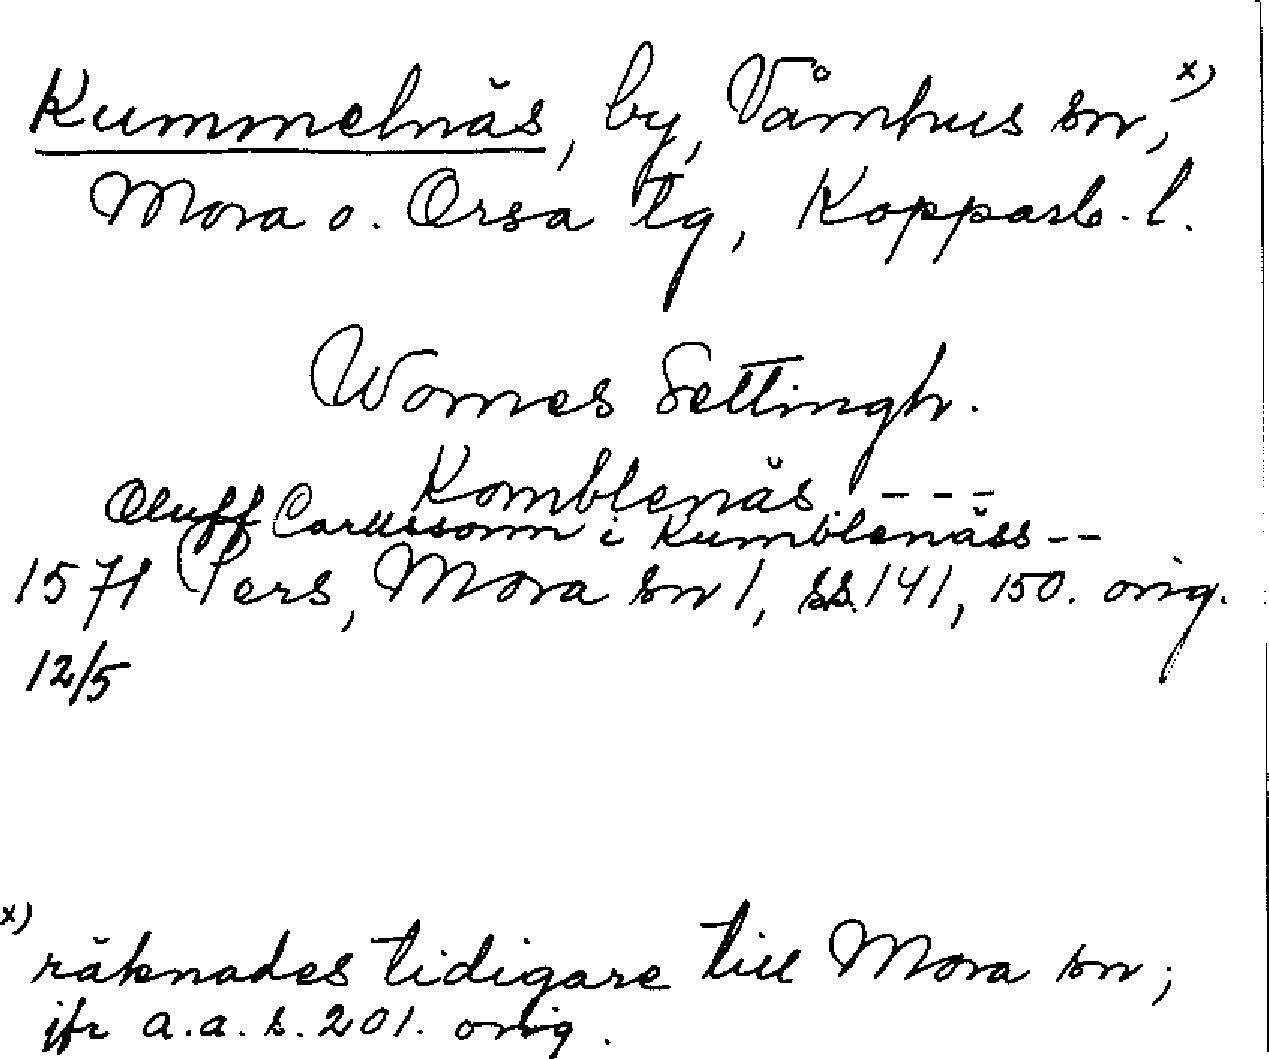 Kummelnäs, by, Våmhus sn, x)
Mora o. Orsa tg, Kopparb. l.
Womes Settingh.
Komblenäs. ---
Oluff Carlssonn i Kumblenäss --
1571 Pers, Mora sn 1, ss. 141, 150. orig.
12/5
x)
räknades tidigare till Mora sn;
jfr a.a. s. 201. orig.